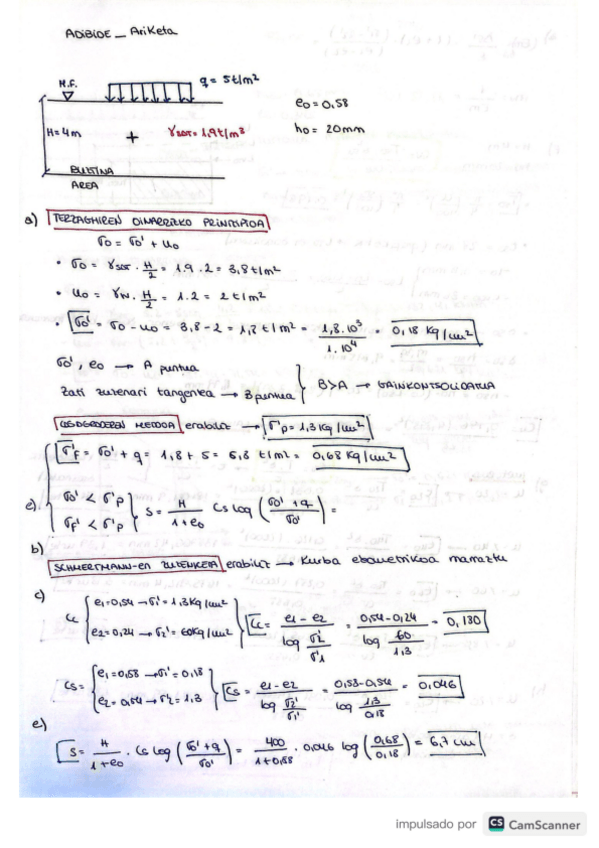 ADIBIDE _ Ariketa
q = 5 t/m²
M.F.
e₀ = 0,58
H = 4 m
γSAT = 1,9 t/m³
h₀ = 20mm
BUZTINA
AREA
a) TERZAGHIREN OINARRIZKO PRINTZIPIOA
σ₀ = σ₀' + u₀
• σ₀ = γSAT · H/2 = 1.9 · 2 = 3,8 t/m²
• u₀ = γw · H/2 = 1 · 2 = 2 t/m²
• σ₀' = σ₀ - u₀ = 3,8 - 2 = 1,8 t/m² = 1,8 · 10³ / 1 · 10⁴ = 0,18 Kg/cm²
σ₀', e₀ → A puntua
Zati zuzenari tangentea → B puntua } B>A → GAINKONTSOLIDATUA
metodoa erabiliz → σ'p = 1,3 Kg/cm²
σ'f = σ₀' + q = 1,8 + 5 = 6,8 t/m² = 0,68 Kg/cm²
e) { σ₀' < σ'p
σf' < σ'p } S = H / 1 + e₀ Cs log ( σ₀' + q / σ₀' ) =
b)
SCHMERTMANN-en ZUZENKETA erabiliz → Kurba edometrikoa marraztu
c)
Cc { e₁ = 0,54 → σ₁' = 1,3 Kg/cm²
e₂ = 0,24 → σ₂' = 60 Kg/cm² } Cc = e₁ - e₂ / log σ₂'/σ'₁ = 0,54 - 0,24 / log 60/1,3 = 0,180
Cs = { e₁ = 0,58 → σ₁' = 0,18
e₂ = 0,54 → σ'₂ = 1,3 } Cs = e₁ - e₂ / log σ₂'/σ₁' = 0,58 - 0,54 / log 1,3/0,18 = 0,046
e)
S = H / 1 + e₀ · Cs log ( σ₀' + q / σ₀' ) = 400 / 1 + 0,58 · 0,046 log ( 0,68 / 0,18 ) = 6,7 cm
impulsado por CS CamScanner